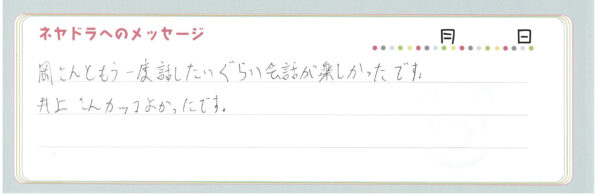 ネヤドラへのメッセージ
月 日
岡さんともう一度話したいぐらい会話が楽しかったです。
井上さんカッコよかったです。